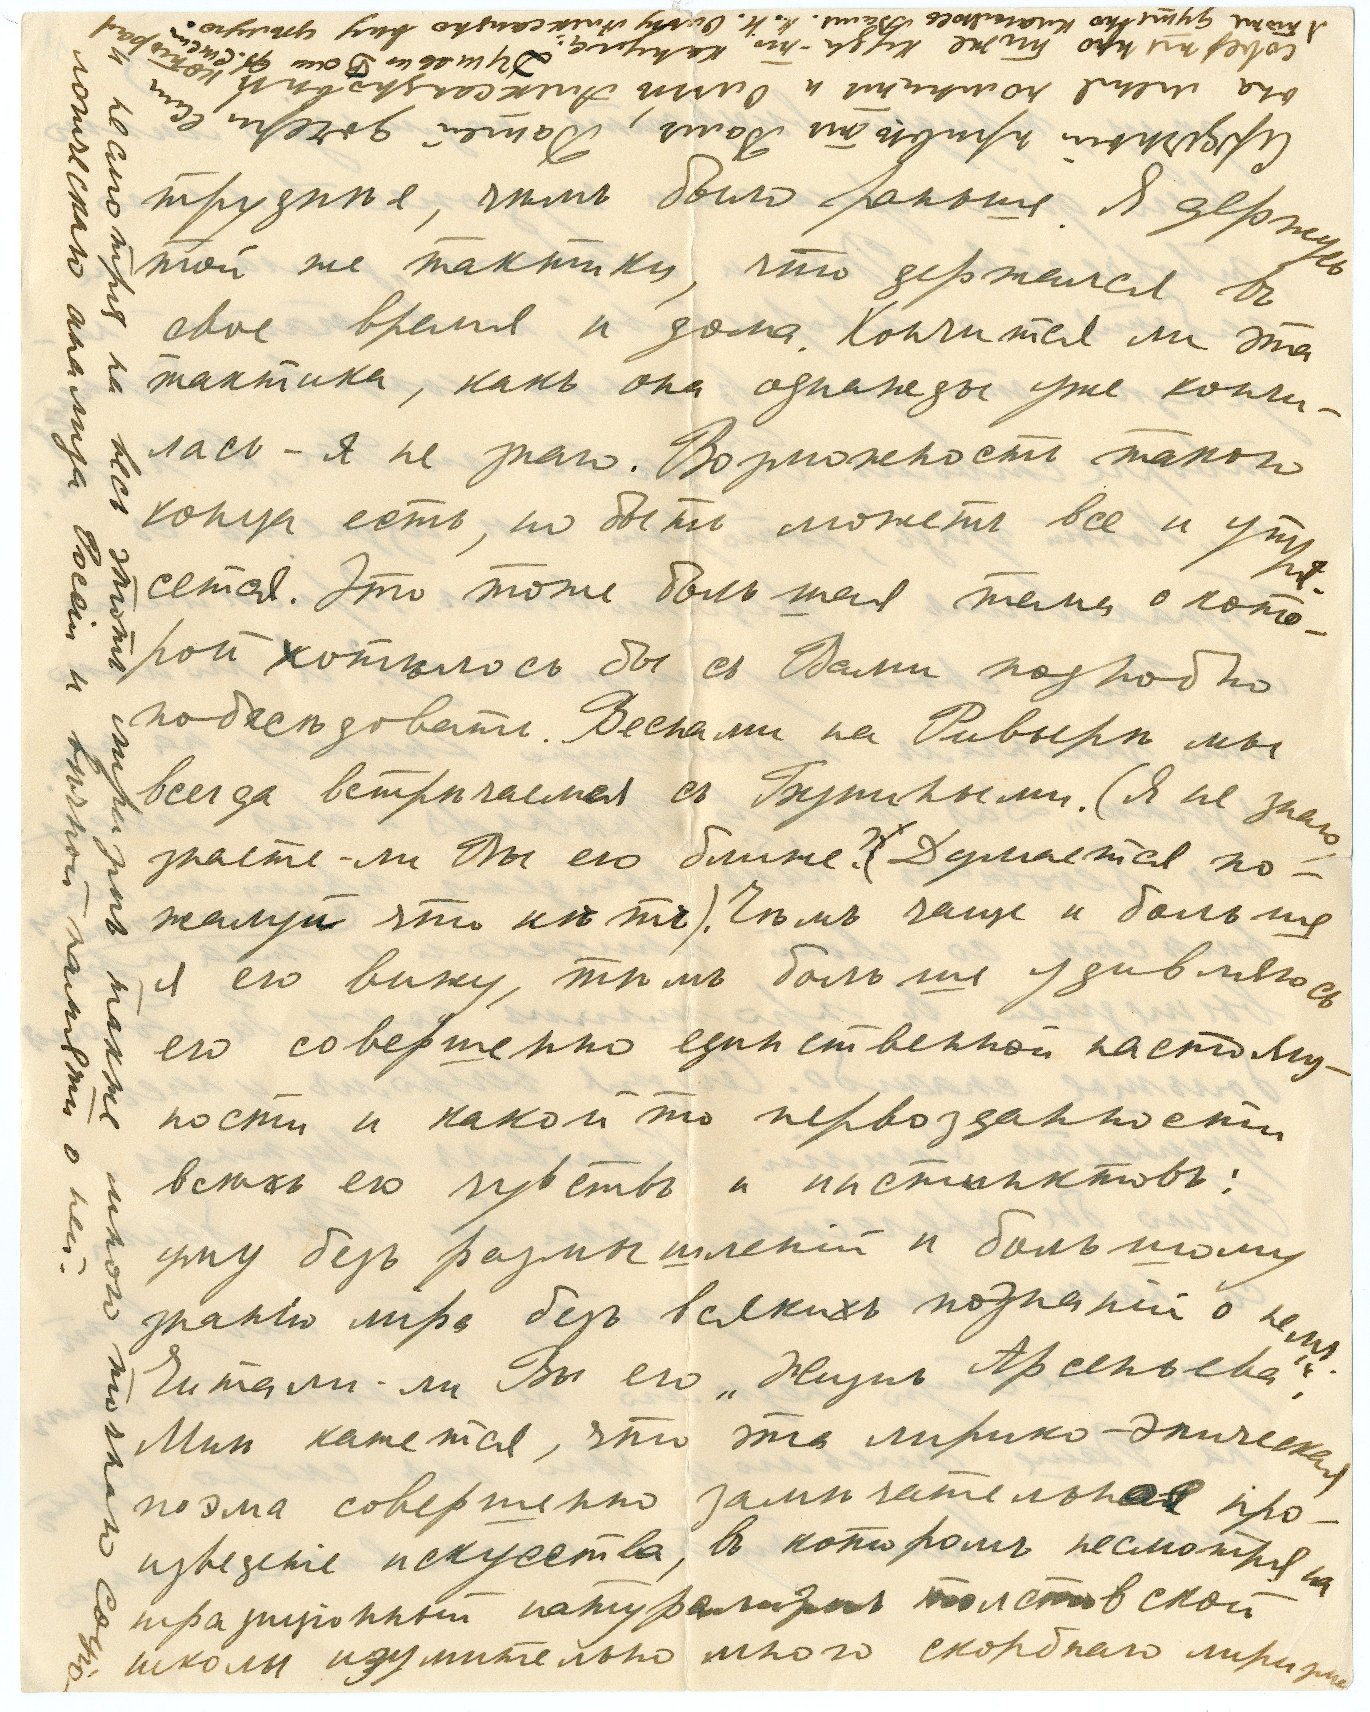 труднѣе, чѣмъ было раньше. Я держусь
той же тактики, что держался въ
свое время и дома. Кончится ли эта
тактика, какъ она однажды уже кончи-
лась – я не знаю. Возможность такого
конца есть, но быть можетъ все и утря-
сется. Это тоже большая тема о кото-
рой хотѣлось бы съ Вами подробно
побесѣдовать. Веснами на Ривьерѣ мы
всегда встрѣчаемся съ Буниными. (Я не знаю,
знаете-ли Вы его ближе? Думается по-
жалуй что нѣтъ). Чѣмъ чаще и больше
я его вижу, тѣмъ больше удивляюсь
его совершенно единственной настоящ-
ности и какой то первозданности
всѣхъ его чувствъ и инстинктовъ:
уму безъ размышленій и большому
знанію міра безъ всякихъ познаній о немъ.
Читали-ли Вы его „Жизнь Арсеньева“?
Мнѣ кажется, что эта лирико-эпическая
поэма совершенно замѣчательное про-
изведеніе искусства, въ которомъ несмотря на
традиціонный натурализмъ толстовской
школы изумительно много скорбнаго лиризма
и несмотря на весь этотъ лиризмъ также много точнаго соціо-
логическаго анализа Россіи и вѣчной памяти о ней.
Сердечный привѣтъ Вамъ, Вашей дочери, если
она меня помнитъ и Ольгѣ Александровнѣ, которой
совершенно также
Душевно Вашъ Ф. Степ